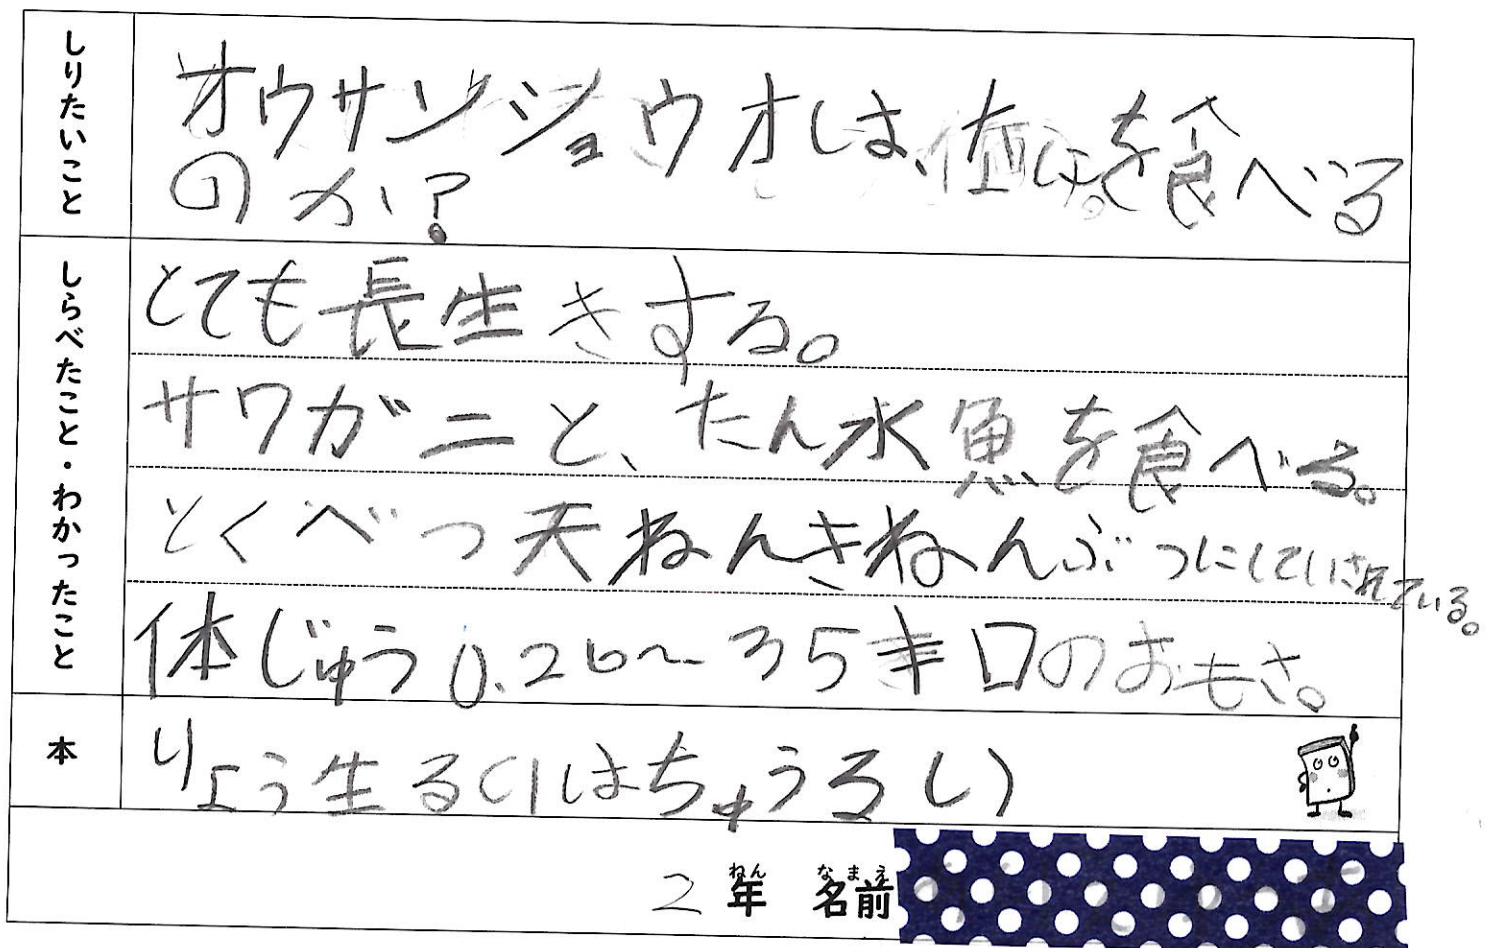 しりたいこと
オウサンショウオしは、なにを食べる
のか?
しらべたこと・わかったこと
とても長生きする。
サワガニと、たん水魚を食べる。
とくべつ天ねんきねんぶつにしていされている。
体じゅう0.26〜35キロのおもさ。
本
りょう生るいはちゅうるい
2年 名前
ねん なまえ